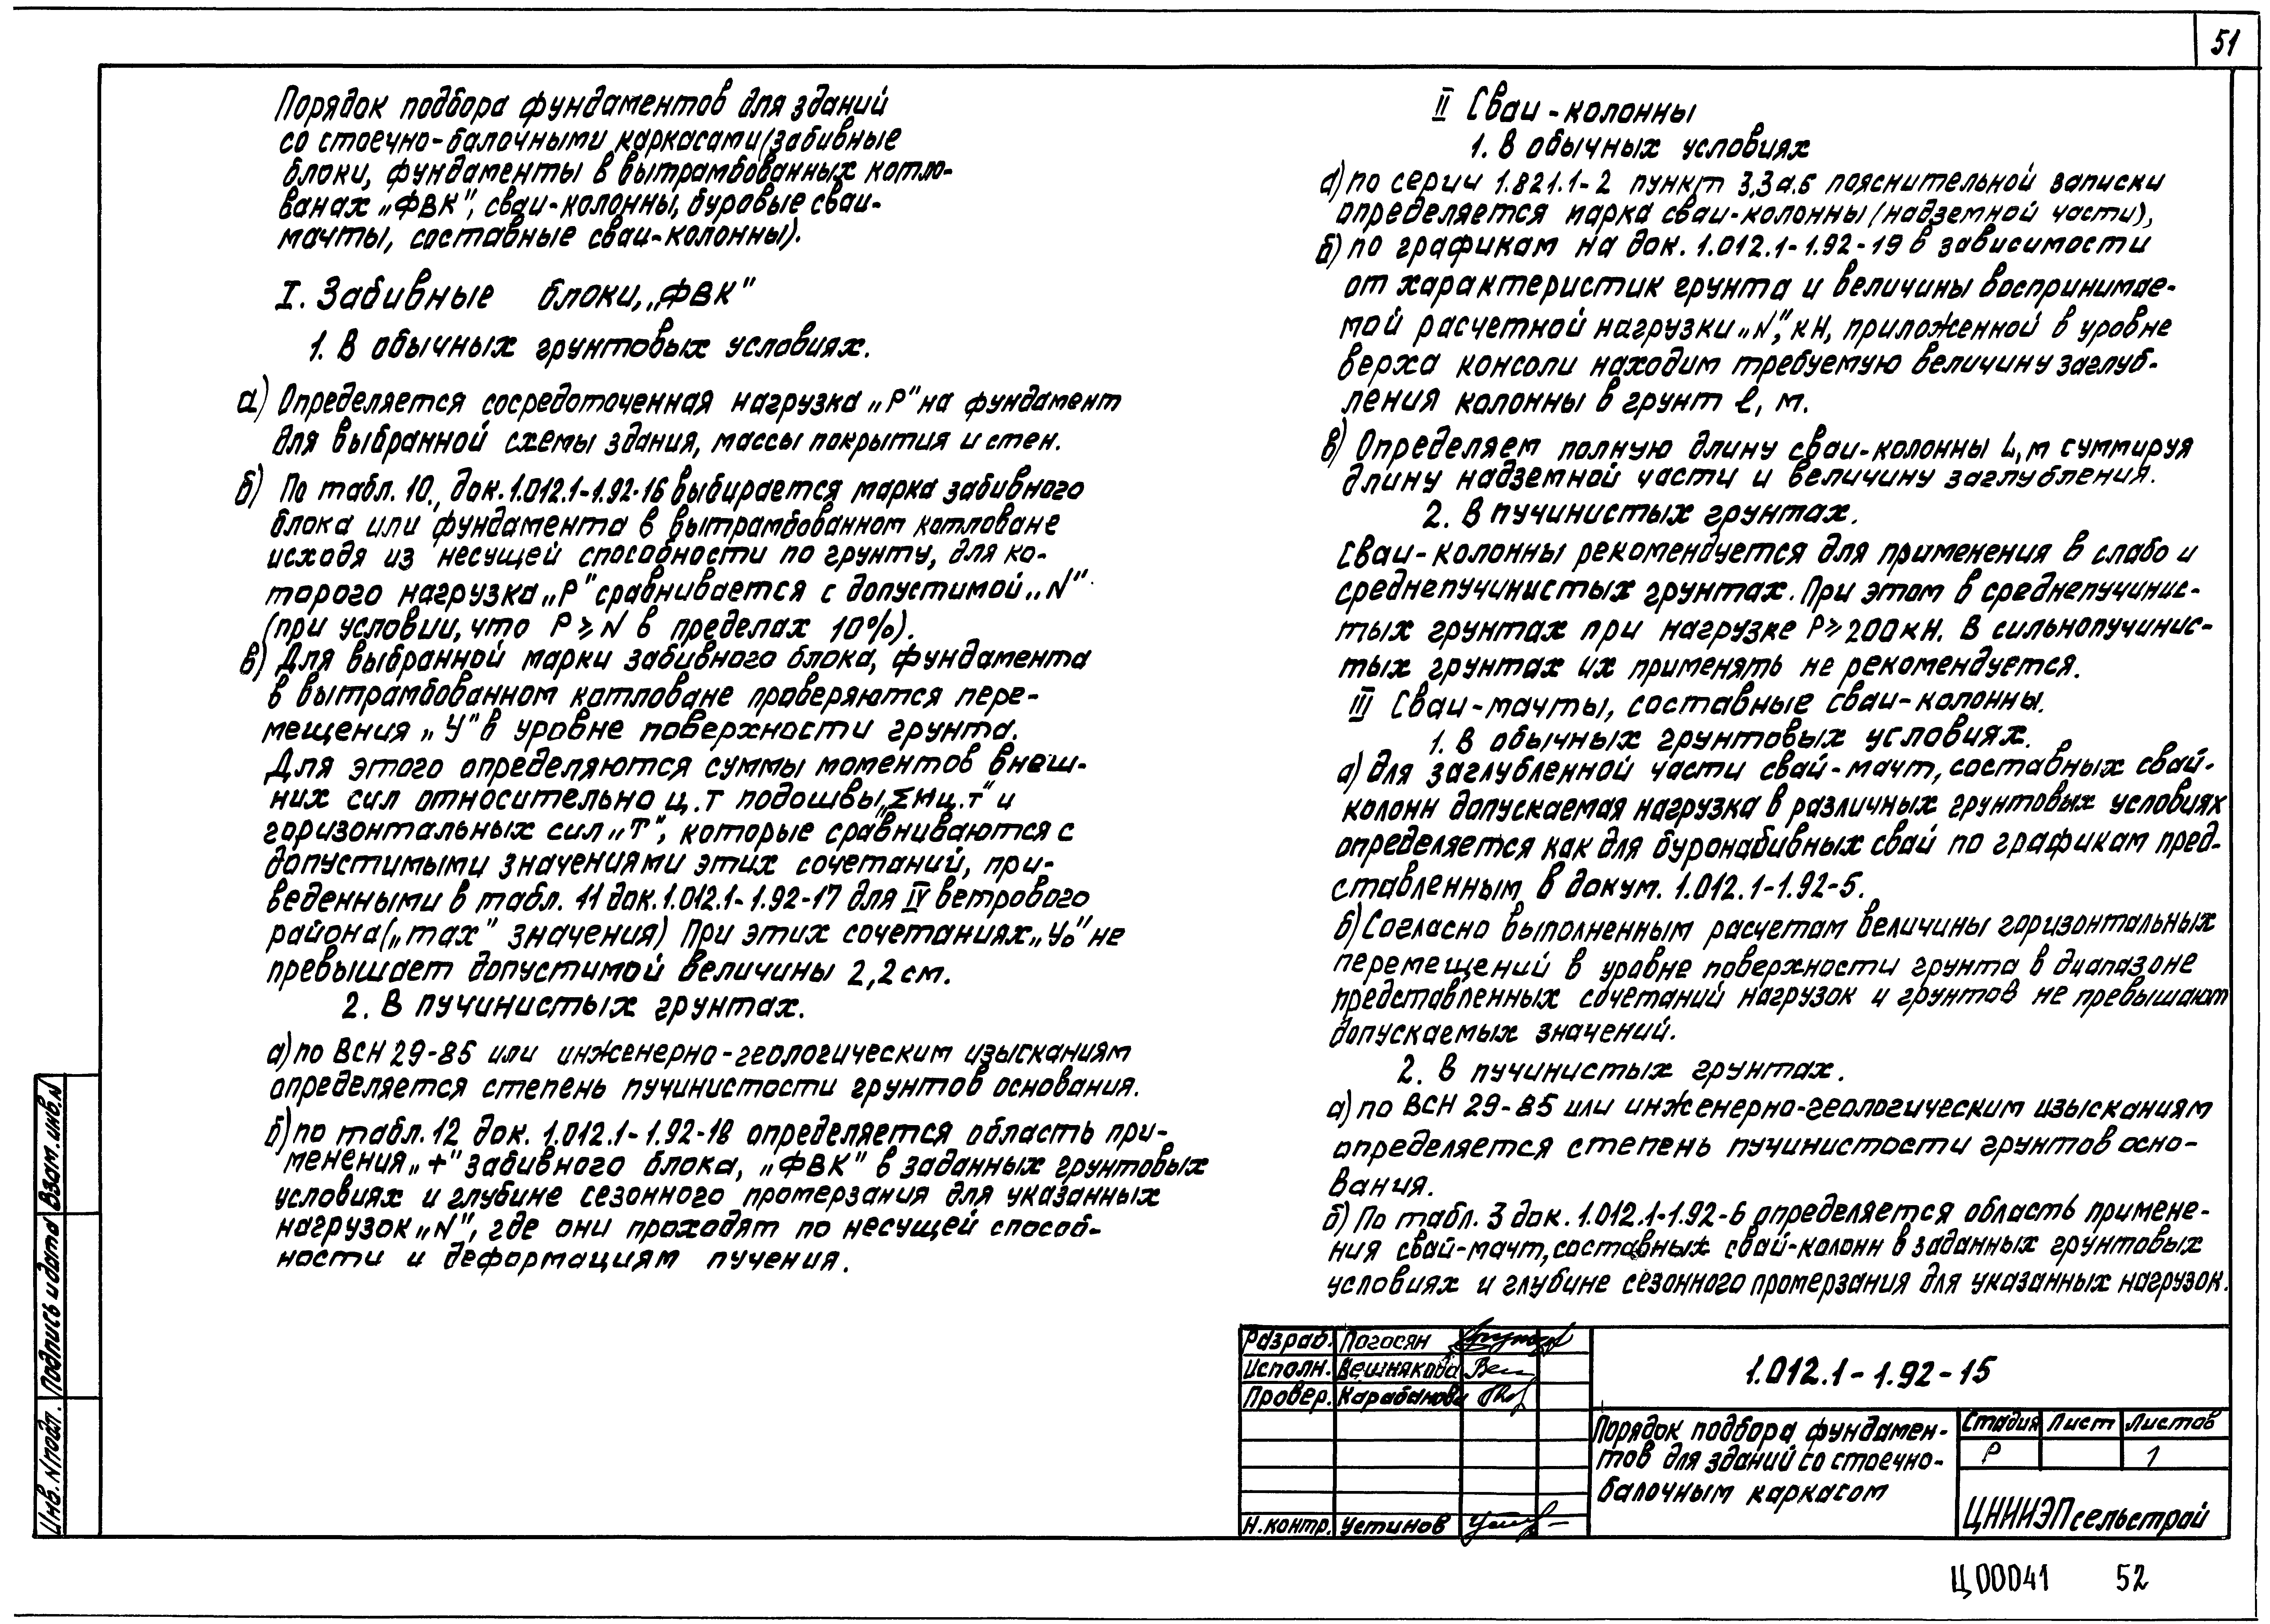 51
Порядок подбора фундаментов для зданий
со стоечно-балочными каркасами (забивные
блоки, фундаменты в вытрамбованных котло-
ванах „ФВК", сваи-колонны, буровые сваи-
мачты, составные сваи-колонны).
I. Забивные блоки, „ФВК"
1. В обычных грунтовых условиях.
а) Определяется сосредоточенная нагрузка „Р" на фундамент
для выбранной схемы здания, массы покрытия и стен.
б) По табл. 10., док. 1.012.1-1.92-16 выбирается марка забивного
блока или фундамента в вытрамбованном котловане
исходя из несущей способности по грунту, для ко-
торого нагрузка „Р" сравнивается с допустимой „N"
(при условии, что Р ≥ N в пределах 10%).
в) Для выбранной марки забивного блока, фундамента
в вытрамбованном котловане проверяются пере-
мещения „У" в уровне поверхности грунта.
Для этого определяются суммы моментов внеш-
них сил относительно ц.т подошвы „ΣМц.т" и
горизонтальных сил „Т", которые сравниваются с
допустимыми значениями этих сочетаний, при-
веденными в табл. 11 док. 1.012.1-1.92-17 для IV ветрового
района („max" значения) При этих сочетаниях „У₀" не
превышает допустимой величины 2,2 см.
2. В пучинистых грунтах.
а) по ВСН 29-85 или инженерно-геологическим изысканиям
определяется степень пучинистости грунтов основания.
б) по табл. 12 док. 1.012.1-1.92-18 определяется область при-
менения „+" забивного блока, „ФВК" в заданных грунтовых
условиях и глубине сезонного промерзания для указанных
нагрузок „N", где они проходят по несущей способ-
ности и деформациям пучения.
II Сваи-колонны
1. В обычных условиях
а) по серии 1.821.1-2 пункт 3,3а.б пояснительной записки
определяется марка сваи-колонны (надземной части),
б) по графикам на док. 1.012.1-1.92-19 в зависимости
от характеристик грунта и величины воспринимае-
мой расчетной нагрузки „N", кН, приложенной в уровне
верха консоли находим требуемую величину заглуб-
ления колонны в грунт ℓ, м.
в) Определяем полную длину сваи-колонны L, м суммируя
длину надземной части и величину заглубления.
2. В пучинистых грунтах.
Сваи-колонны рекомендуется для применения в слабо и
среднепучинистых грунтах. При этом в среднепучинис-
тых грунтах при нагрузке Р ≥ 200 кН. В сильнопучинис-
тых грунтах их применять не рекомендуется.
III Сваи-мачты, составные сваи-колонны.
1. В обычных грунтовых условиях.
а) Для заглубленной части свай-мачт, составных свай-
колонн допускаемая нагрузка в различных грунтовых условиях
определяется как для буронабивных свай по графикам пред-
ставленным в докум. 1.012.1-1.92-5.
б) Согласно выполненным расчетам величины горизонтальных
перемещений в уровне поверхности грунта в диапазоне
представленных сочетаний нагрузок и грунтов не превышают
допускаемых значений.
2. В пучинистых грунтах.
а) по ВСН 29-85 или инженерно-геологическим изысканиям
определяется степень пучинистости грунтов осно-
вания.
б) По табл. 3 док. 1.012.1-1.92-6 определяется область примене-
ния свай-мачт, составных свай-колонн в заданных грунтовых
условиях и глубине сезонного промерзания для указанных нагрузок.
Разраб. Погосян
Исполн. Вешнякова
Провер. Карабанова
Н.контр. Устинов
1.012.1-1.92-15
Порядок подбора фундамен-
тов для зданий со стоечно-
балочным каркасом
Стадия Лист Листов
Р 1
ЦНИИЭПсельстрой
Инв. N подл. Подпись и дата Взам. инв. N
Ц00041 52